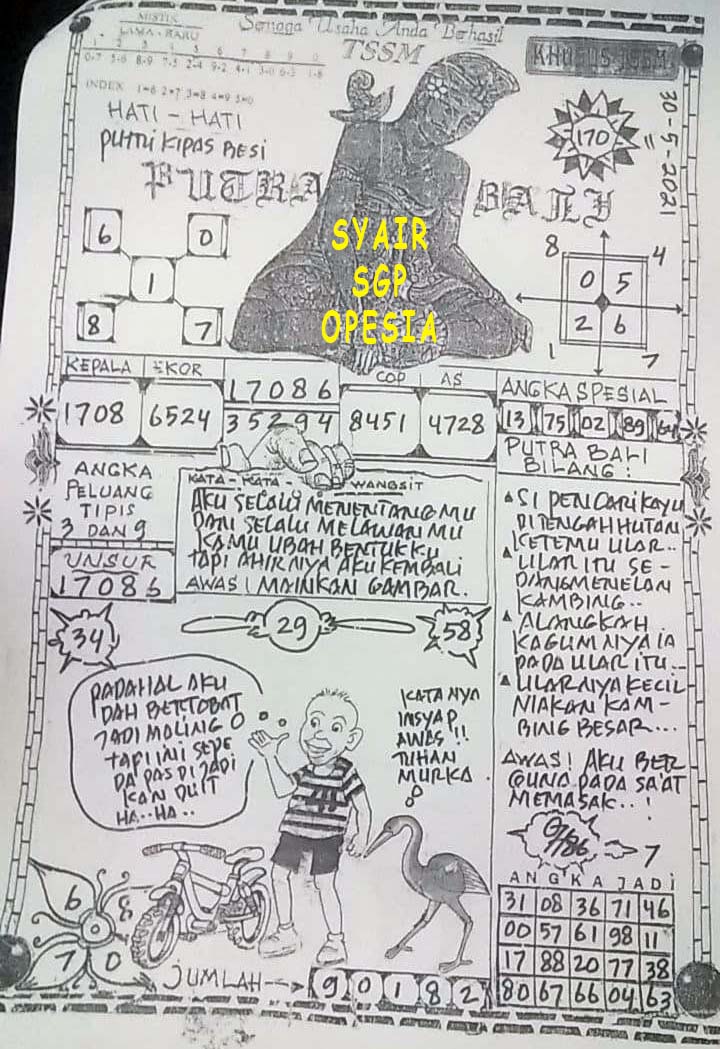 MISTIK
LAMA - BARU
Semoga Usaha Anda Berhasil
TSSM
KHUSUS TSSM
1 2 3 4 5 6 7 8 9 0
0-7 5-6 8-9 7-5 2-4 9-2 4-1 3-0 6-3 1-8
INDEX 1=6 2=7 3=8 4=9 5=0
HATI - HATI
PUTRI KIPAS BESI
PUTRA BALI
170
30-5-2021
6 0
1
8 7
SYAIR
SGP
OPESIA
8 4
0 5
2 6
1 7
KEPALA EKOR
1708 6524
17086
35294
COP AS
8451 4728
ANGKA SPESIAL
13 75 02 89 64
ANGKA
PELUANG
TIPIS
3 DAN 9
UNSUR
17086
KATA - KATA - WANGSIT
AKU SELALU MENENTANG MU
DAN SELALU MELAWAN MU
KAMU UBAH BENTUKKU
TAPI AHIRNYA AKU KEMBALI
AWAS! MAINKAN GAMBAR.
PUTRA BALI
BILANG:
SI PENCARI KAYU
DITENGAH HUTAN
KETEMU ULAR..
ULAR ITU SE-
DANG MENELAN
KAMBING..
ALANGKAH
KAGUMNYA IA
PADA ULAR ITU...
ULARNYA KECIL
MAKAN KAM-
BING BESAR...
AWAS! AKU BER
GUNA PADA SA'AT
MEMASAK..!
34
29
58
PADAHAL AKU
DAH BERTOBAT
JADI MALING
TAPI INI SEPE
DA PAS DI JADI
KAN DUIT
HA..HA..
KATANYA
INSYAP
AWAS!!
TUHAN
MURKA
7
6 8
7 0
JUMLAH
9 0 1 8 2
ANGKA JADI
31 08 36 71 46
00 57 61 98 11
17 88 20 77 38
80 67 66 04 63